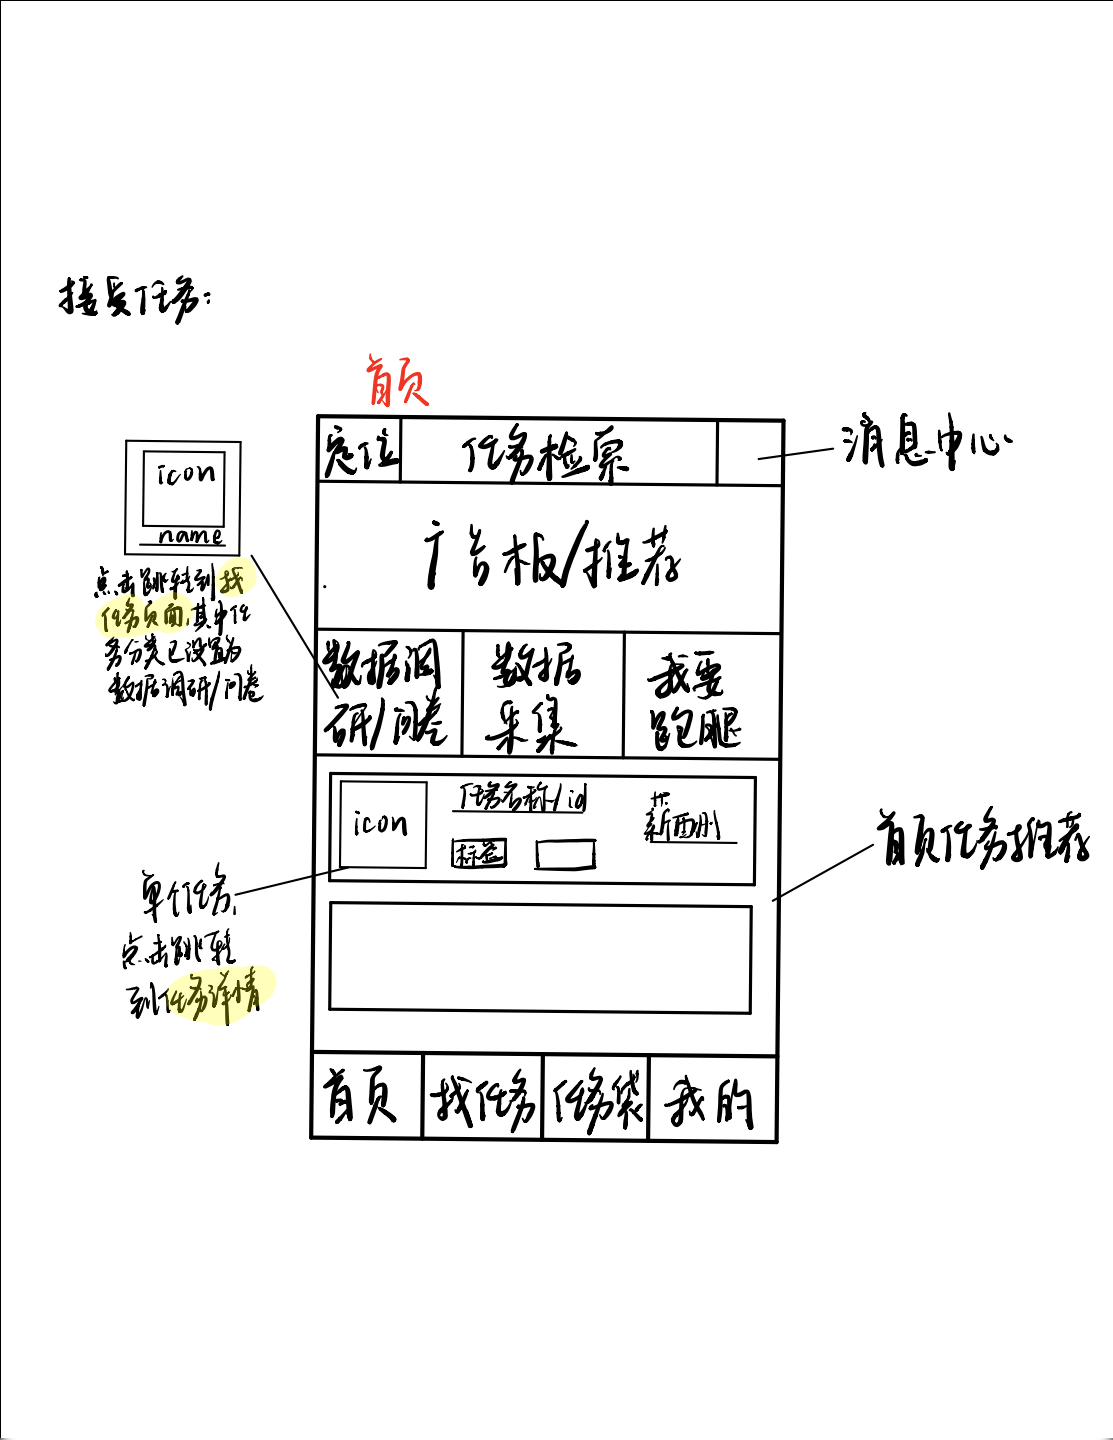 接受任务:
首页
定位
任务检索
消息中心
广告板/推荐
icon
name
点击跳转到找
任务页面,其中任
务分类已设置为
数据调研/问卷
数据调
研/问卷
数据
采集
我要
跑腿
icon
任务名称/id
标签
单个任务,
点击跳转
到任务详情
首页任务推荐
首页
找任务
任务袋
我的